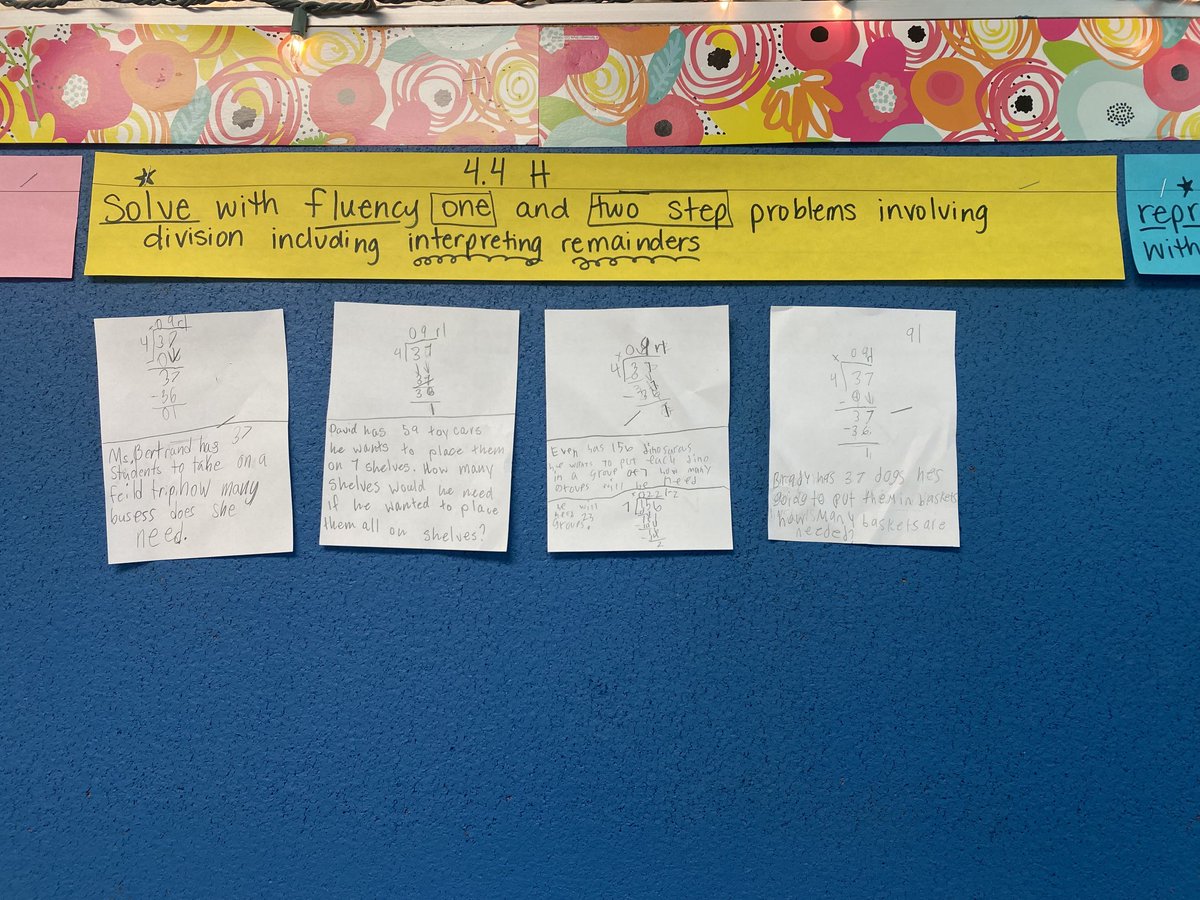 4.4 H
Solve with fluency one and two step problems involving
division including interpreting remainders
repr
with
09 r1
4 37
0
37
-36
01
37
Ms. Bertrand has
students to take on a
feild trip how many
busess does she
need.
09 r1
4 37
37
36
1
David has 59 toy cars
he wants to place them
on 7 shelves. How many
shelves would he need
if he wanted to place
them all on shelves?
09 r1
4 37
Even has 156 dinosurus
he wants to put each dino
in a group of 7 how many
groups will he need
we will
need 23
groups.
022 r2
7 156
2
91
4 37
37
-36
1
Brady has 37 dogs hes
going to put them in baskets
how many baskets are
needed?